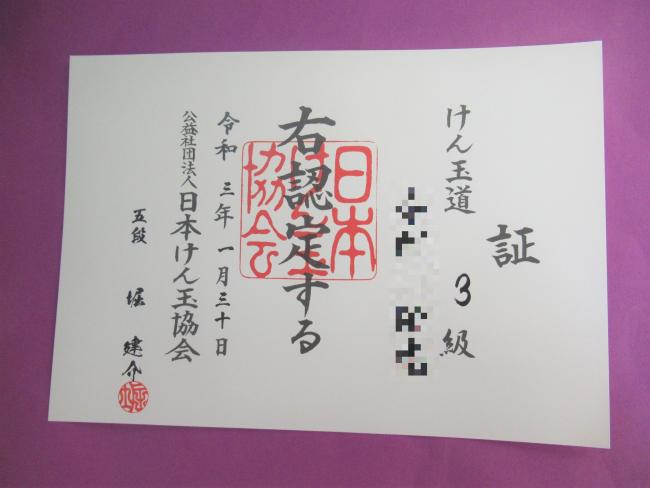 証
けん玉道 3級
右認定する
日本けん玉協会
令和三年一月三十日
公益社団法人日本けん玉協会
五段 堀 建介